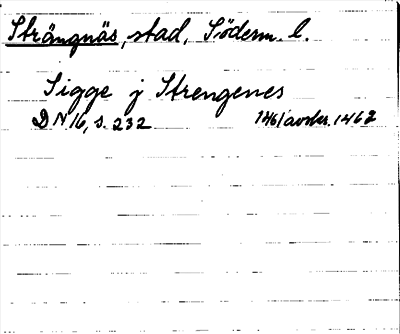 Strängnäs, stad, Söderm. l.
Sigge j Strengenes
DN 16, s. 232 1461 avskr. 1462